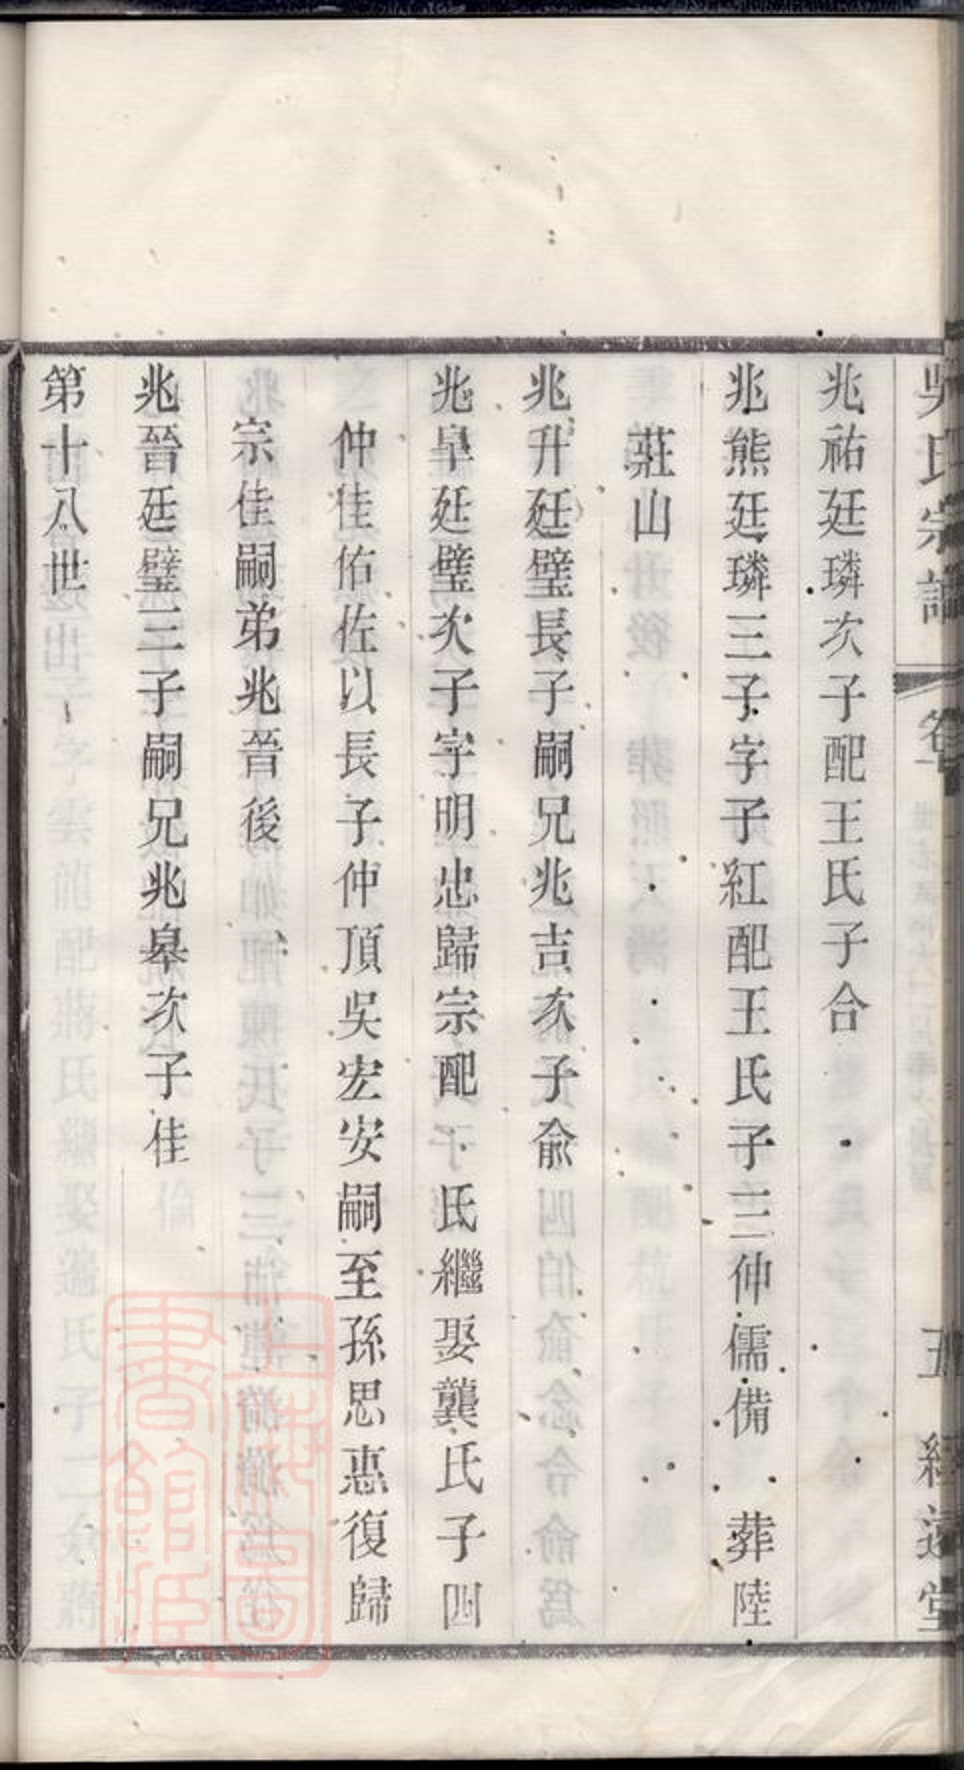 吳氏宗譜 卷 五 經遠堂
兆祐廷璘次子配王氏子合
兆熊廷璘三子字子紅配王氏子三仲儒備 葬陸
莊山
兆升廷璧長子嗣兄兆吉次子俞
兆皐廷璧次子字明忠歸宗配 氏繼娶龔氏子四
仲佳佑佐以長子仲頂吳宏安嗣至孫思惪復歸
宗佳嗣弟兆晉後
兆晉廷璧三子嗣兄兆皋次子佳
第十八世
上海圖書館藏